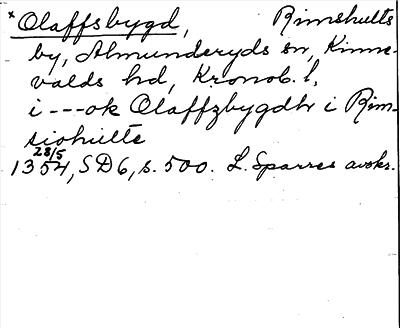 * Olaffsbygd, Rimshults
by, Almunderyds sn, Kinne-
valds hd, Kronob. l.
i --- ok Olaffzbygdh i Rim-
siohulte
28/5
1354, SD6, s. 500. L. Sparres avskr.